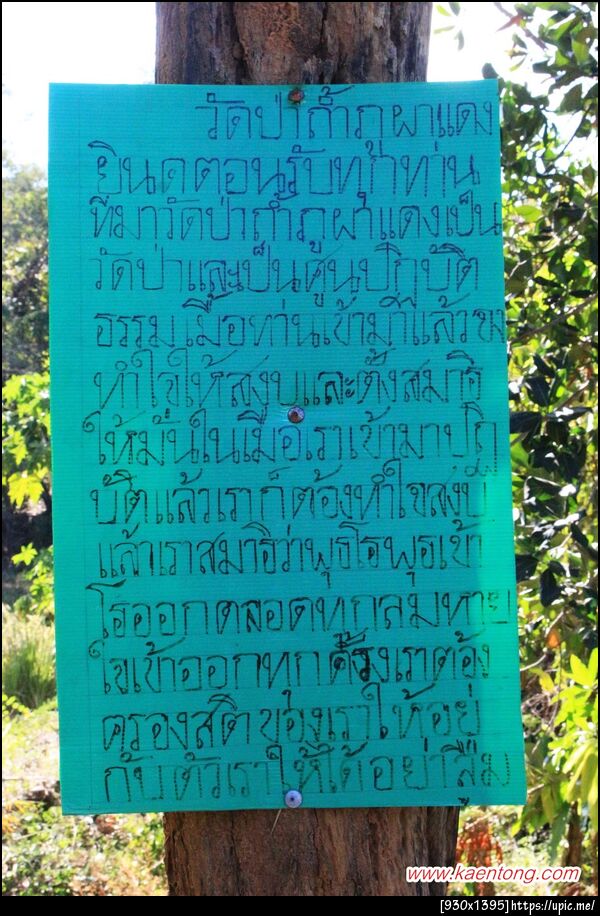 วัดป่าถ้ำภูผาแดง
ยินดตอนรับทุกท่าน
ที่มาวัดป่าถ้ำภูผาแดงเป็น
วัดป่าและเป็นศูนปฏิบัติ
ธรรม เมื่อท่านเข้ามาแล้ว
ทำใจให้สงบและตั้งสมาธิ
ให้มั่นในเมื่อเราเข้ามาปฏิ
บัติแล้วเราก็ต้องทำใจสงบ
แล้วเราสมาธิว่าพุธโธพุธเข้า
โธออกตลอดทุกลมหาย
ใจเข้าออกทุกครั้งเราต้อง
ครองสติของเราให้อยู่
กับตัวเราให้ได้อย่าลืม
www.kaentong.com
[930x1395]https://upic.me/